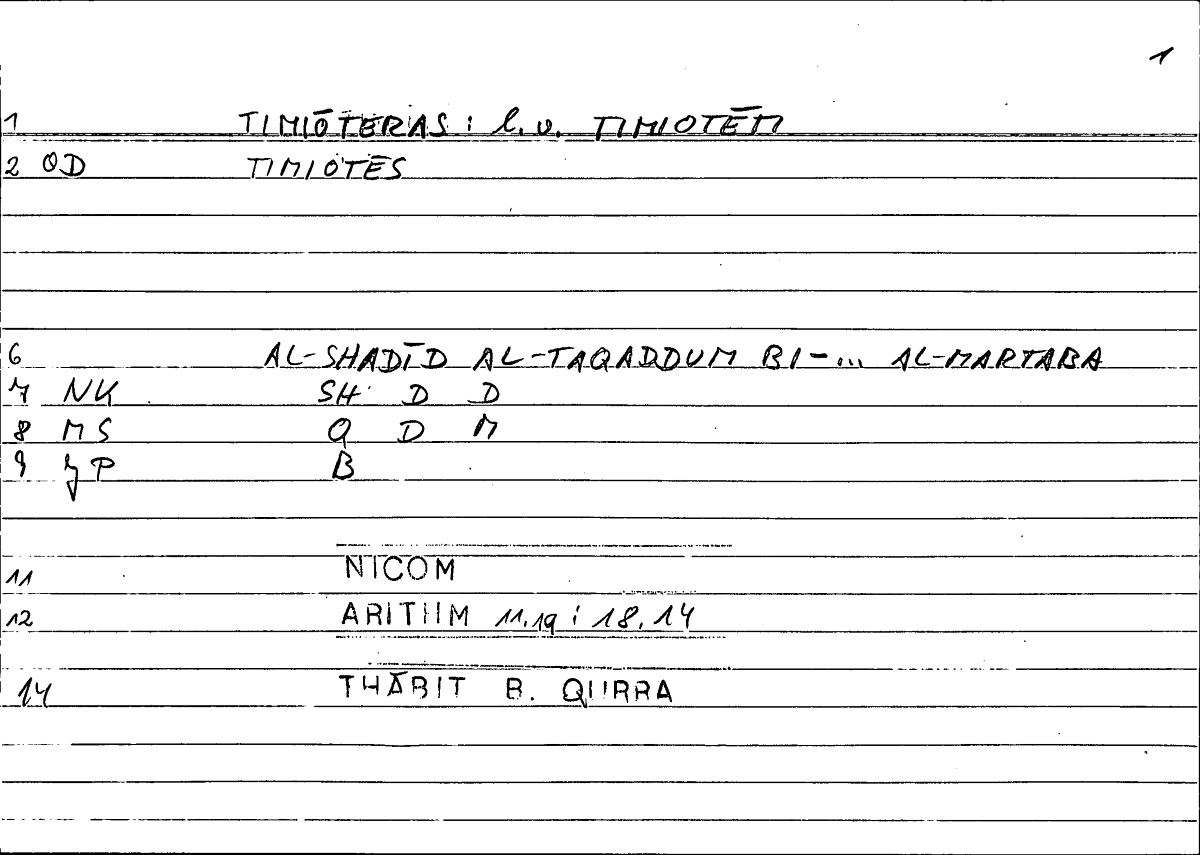 1
1 TIMIŌTERAS : l. v. TIMIOTĒM
2 OD TIMIOTĒS
6 AL-SHADĪD AL-TAQADDUM BI-... AL-MARTABA
7 NK SH D D
8 MS Q D M
9 B
11 NICOM
12 ARITHM 11.19 : 18.14
14 THĀBIT B. QURRA